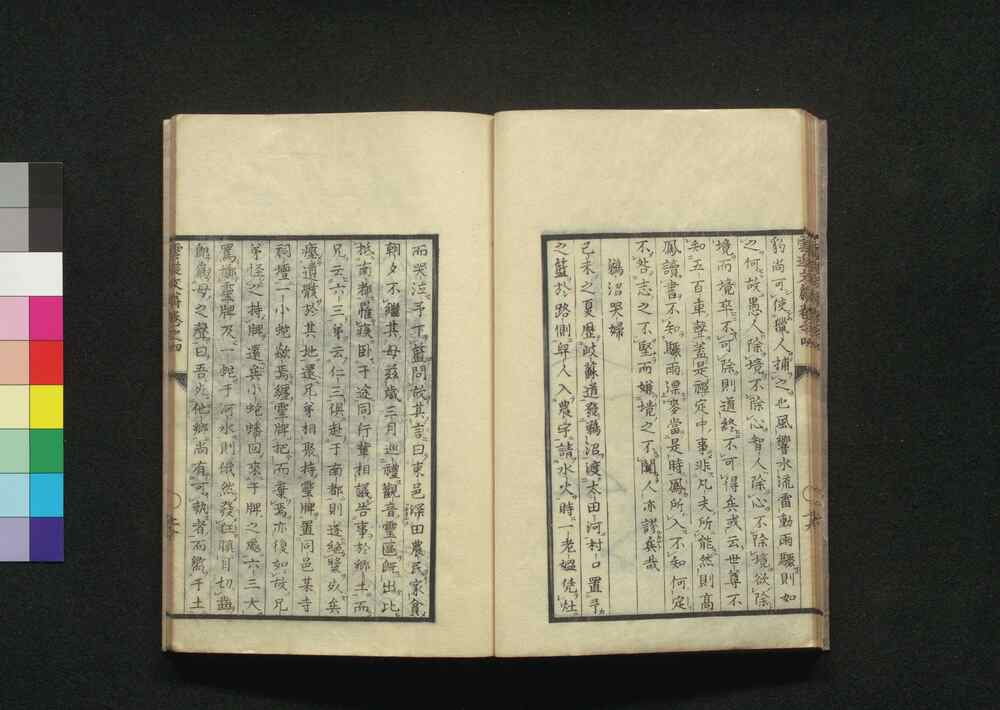 豹尚可使獵人捕之也風響水流雷動雨驟則如
之何故愚人除境不除心智人除心不除境欲除
境而境卒不可除則道終不可得矣或云世尊不
知五百車聲蓋是禪定中事非凡夫所能然則高
鳳讀書不知驟雨漂麥當是時鳳所入不知何定
不咎志之不堅而嫌境之不閑人亦謬矣哉
鵜沼哭婦
己未之夏歷岐蘇道發鵜沼渡太田河村口置予
之籃於路側舁人入農宇請水火時一老媼凭灶
而哭泣予下籃問故其言曰東邑深田農民家貧
朝夕不繼其母茲歲三月巡禮觀音靈區既出比
抵南都罹疾臥于途同行輩相議告事於鄉土而
兄云六弟云仁三俱赴于南都則遂絕矣
瘞遺骸於其地還兄弟相聚持靈牌置同邑某寺
祠壇一小蛇歘焉纏靈牌把而棄焉亦復如故兄
弟怪之持牌還矣小蛇蟠回來于牌之處六三大
罵擲靈牌及一蛇于河水則俄然發狂瞋目切齒
母之聲曰吾死他鄉尚有可執者而幽于土